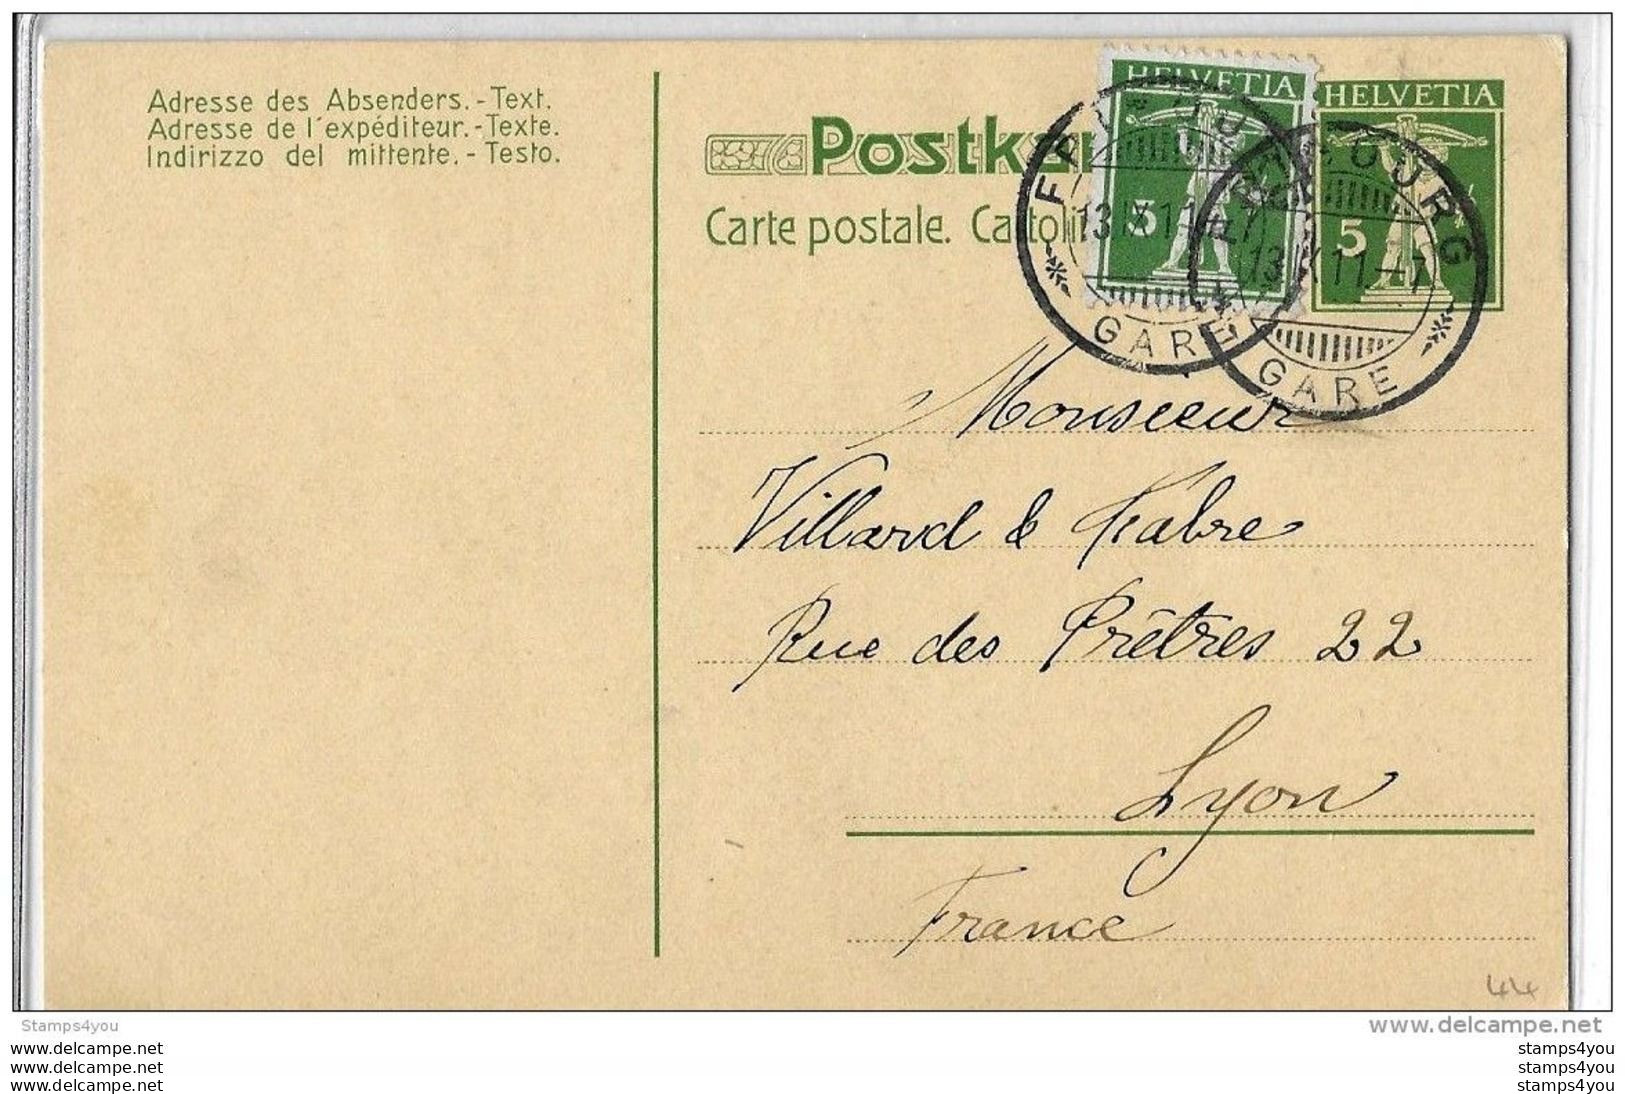 Adresse des Absenders.-Text.
Adresse de l'expéditeur.-Texte.
Indirizzo del mittente.-Testo.
Postkar
Carte postale. Cartoli
HELVETIA
5
HELVETIA
5
FRIBOURG
13 IX 11-7
GARE
FRIBOURG
13 IX 11-7
GARE
Monsieur
Villard & Fabre
Rue des Prêtres 22
Lyon
France
44
Stamps4you
www.delcampe.net
www.delcampe.net
www.delcampe.net
www.delcampe.net
stamps4you
stamps4you
stamps4you